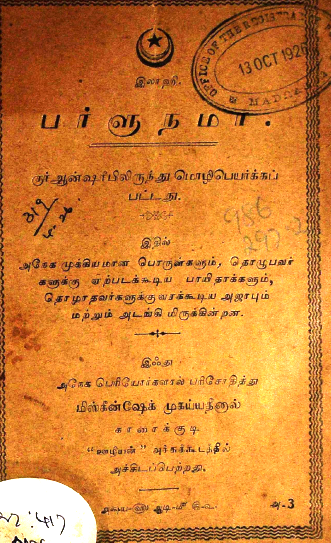 OFFICE OF THE REGISTRAR
13 OCT 1926
MADRAS
இலாஹி.
பர்ளுநமா.
குர்ஆன்ஷரீபிலிருந்து மொழிபெயர்க்கப்
பட்டது.
இதில்
அநேக முக்கியமான பொருள்களும், தொழுபவர்
களுக்கு ஏற்படக்கூடிய பாயிதாக்களும்,
தொழாதவர்களுக்கு வரக்கூடிய அஜாபும்
மற்றும் அடங்கி யிருக்கின்றன.
இஃது
அநேக பெரியோர்களால் பரிசோதித்து
மிஸ்கீன்ஷேக் முகய்யதீனால்
காரைக்குடி
"ஊழியன்" அச்சுக்கூடத்தில்
அச்சிடப்பெற்றது.
அ-3